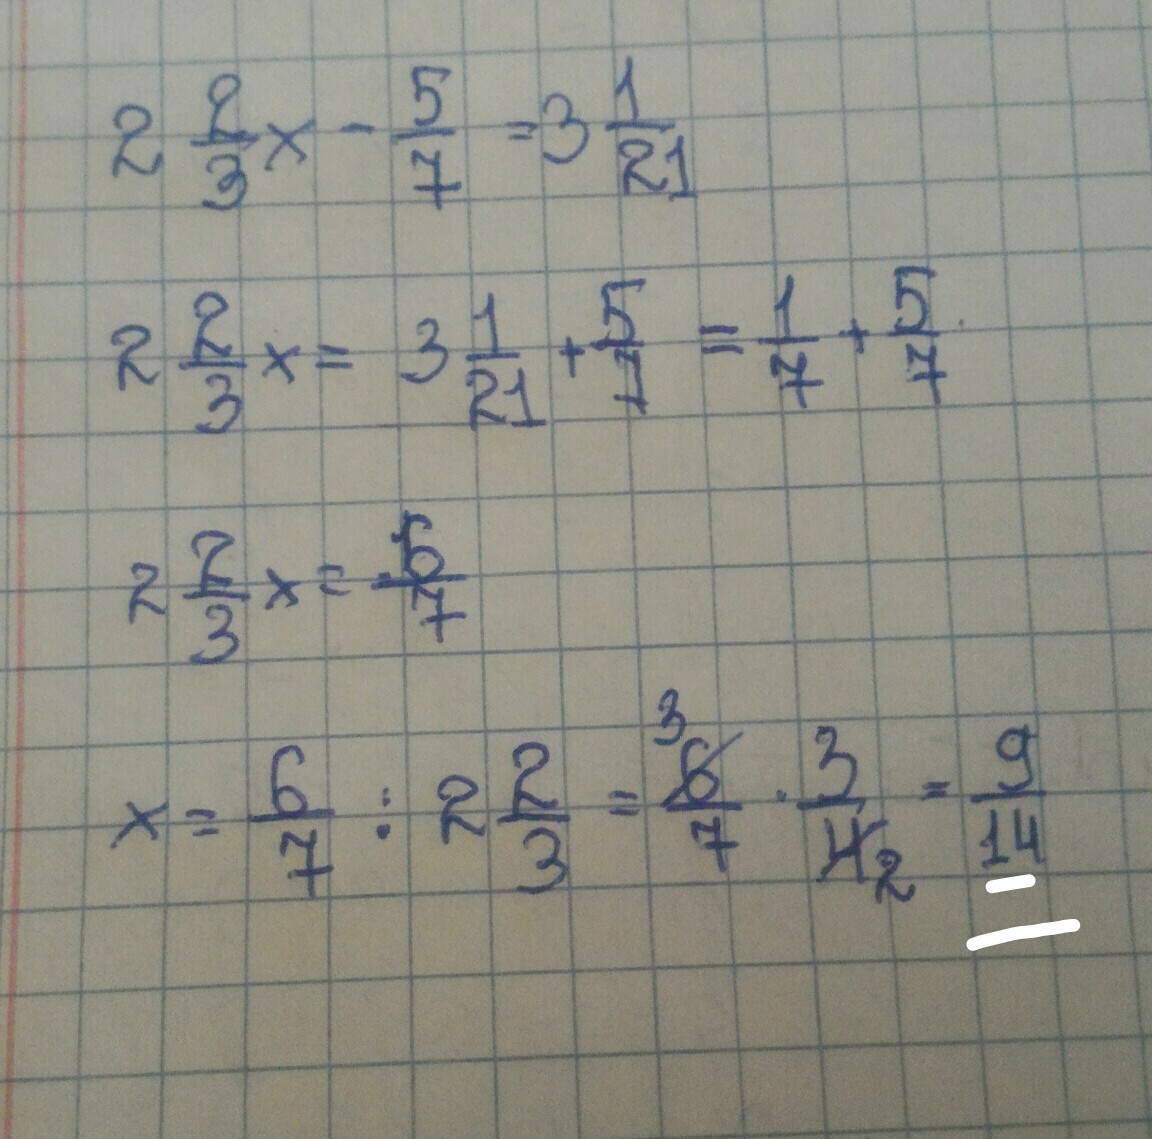 2 2/3 x - 5/7 = 3 1/21
2 2/3 x = 3 1/21 + 5/7 = 1/7 + 5/7
2 2/3 x = 6/7
x = 6/7 : 2 2/3 = 3 6/7 · 3/4 2 = 9/14